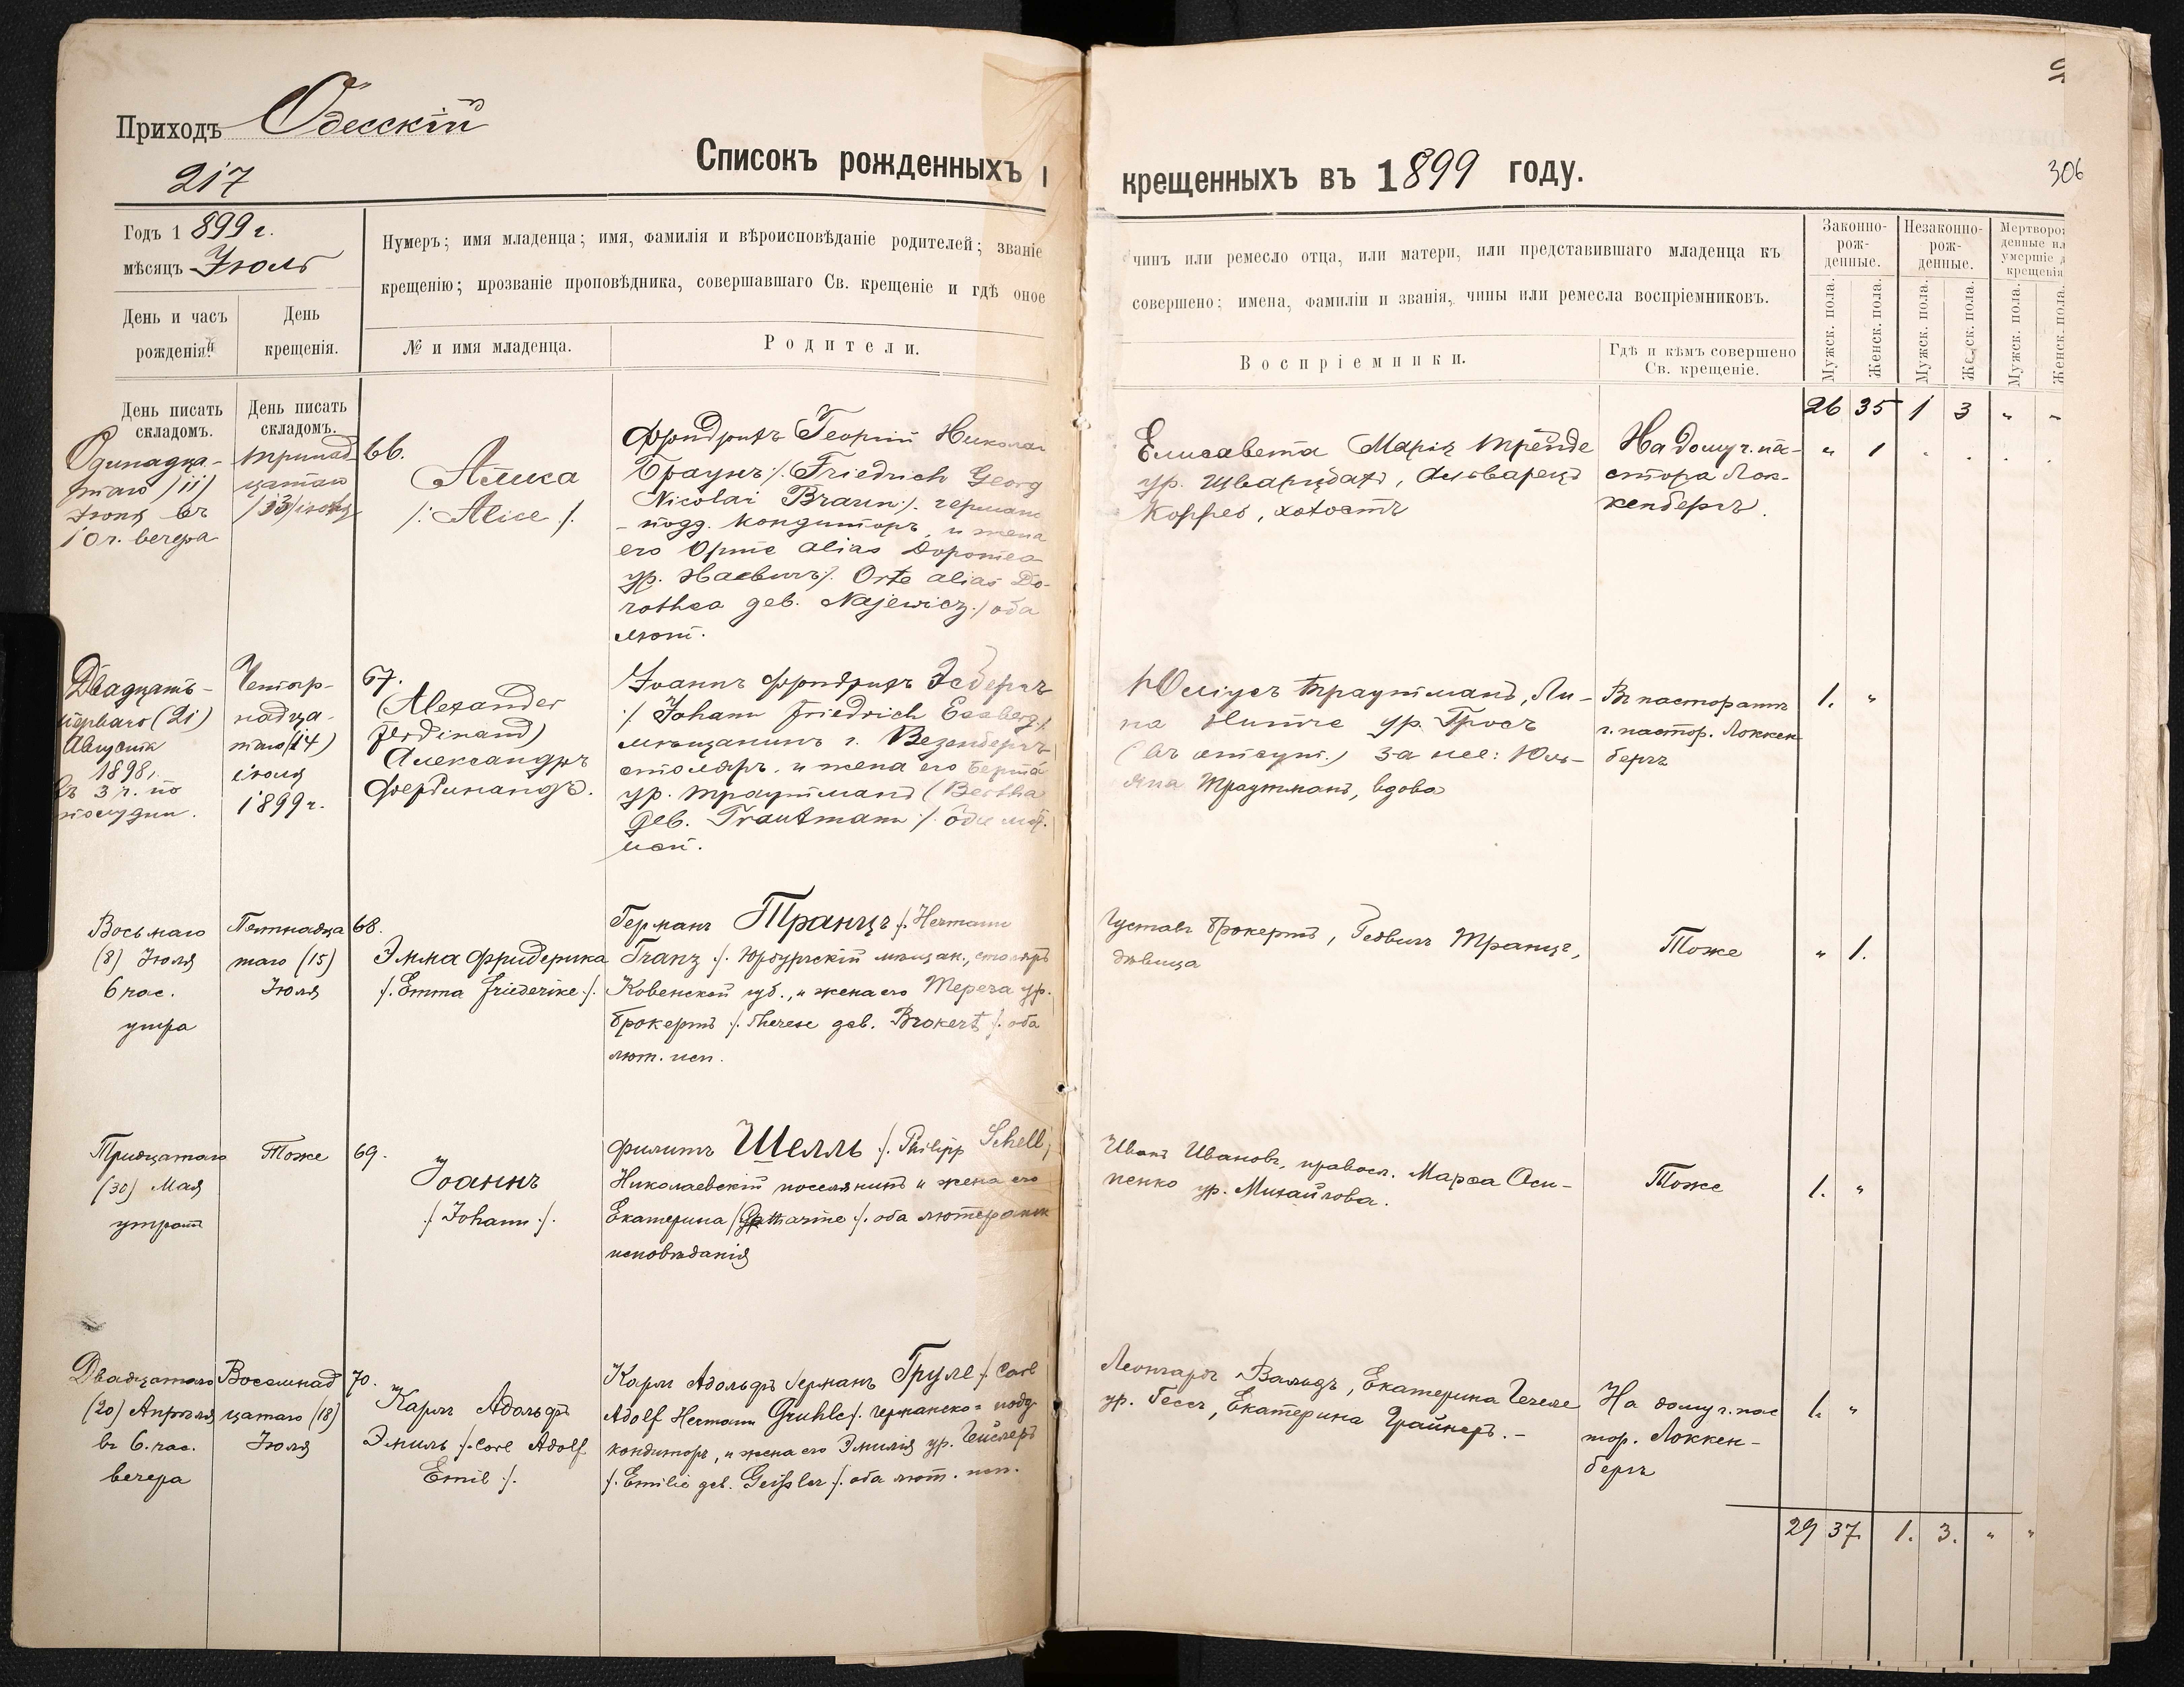 Приходъ Одесскій
217
Списокъ рожденныхъ и крещенныхъ въ 1899 году.
306
Годъ 1899 г.
мѣсяцъ Іюль
Нумеръ; имя младенца; имя, фамилія и вѣроисповѣданіе родителей; званіе
крещенію; прозваніе проповѣдника, совершавшаго Св. крещеніе и гдѣ оное
День и часъ
рожденія.
День
крещенія.
№ и имя младенца.
Родители.
чинъ или ремесло отца, или матери, или представившаго младенца къ
совершено; имена, фамиліи и званія, чины или ремесла воспріемниковъ.
Воспріемники.
Гдѣ и кѣмъ совершено
Св. крещеніе.
Законно-
рож-
денные.
Незаконно-
рож-
денные.
Мертворож
денные ил
умершіе д
крещенія
Мужск. пола.
Женск. пола.
Мужск. пола.
Женск. пола.
Мужск. пола.
Женск. пола.
День писать
складомъ.
День писать
складомъ.
26 35 1 3 „ „
Одинадца-
таго /11/
Іюня въ
10 ч. вечера
тринад
цатаго
/13/ іюля
66.
Алиса
/: Alice /.
Фридрихъ Георгій Николай
Браунъ /. Friedrich Georg
Nicolai Braun /. германс
-подд. кондиторъ, и жена
его Орте alias Доротеа
ур. Наевичъ /. Orte alias Do-
rothea geb. Najewicz /. оба
лют.
Елисавета Марія Тренде
ур. Шварцбахъ, Альварецъ
Коффеѣ, холостъ
На дому г. па-
стора Лок-
кенбергъ.
„ 1 . . . .
Двадцать-
перваго (21)
Августа
1898,
въ 3 ч. по
полудни.
Четыр-
надца-
таго (14)
іюля
1899 г.
67.
(Alexander
Ferdinand)
Александръ
Фердинандъ.
Іоаннъ Фридрихъ Эсбергъ
/. Johann Friedrich Essberg /.
мѣщанинъ г. Везенбергъ
столяръ. и жена его Берта
ур. Траутманъ (Bertha
geb. Trautmann /. оба лют.
исп.
Юліусъ Траутманъ, Ли-
на Нитче ур. Гросъ
(въ отсут.) за нее: Юль-
яна Траутманъ, вдова
Въ пасторатѣ
г. пастор. Локкен
бергъ
1. „
Восьмаго
(8) Іюля
6 час.
утра
Пятнадца
таго (15)
Іюля
68.
Эмма Фридерика
/. Emma Friederike /.
Германъ Транцъ /. Hermann
Tranz /. Юрбургскій мѣщан., столяръ
Ковенской губ., и жена его Тереза ур.
Брокертъ /. Therese geb. Brokert /. оба
лют. исп.
Густавъ Брокертъ, Гедвигъ Транцъ,
дѣвица
Тоже
„ 1.
Тридцатаго
(30) Мая
утромъ
Тоже
69.
Іоаннъ
/. Johann /.
Филиппъ Шелль /. Philipp Schell /
Николаевскій поселянинъ и жена его
Екатерина / Catharine /. оба лютеранск
исповѣданія
Иванъ Ивановъ, правосл. Марѳа Оси-
пенко ур. Михайлова.
Тоже
1. „
Двадцатаго
(20) Апрѣля
въ 6. час.
вечера
Восемнад
цатаго (18)
Іюля
70.
Карлъ Адольфъ
Эмиль /. Carl Adolf
Emil /.
Карлъ Адольфъ Германъ Груле /. Carl
Adolf Hermann Gruhle /. германско-подд
кондиторъ, и жена его Эмилія ур. Гейслеръ
/. Emilie geb. Geissler /. оба лют. исп.
Леонгардъ Вальдъ, Екатерина
ур. Гессъ, Екатерина Грайнеръ. –
На дому г. пас
тор. Локкен-
бергъ
1. „
29 37. 1. 3. „ „